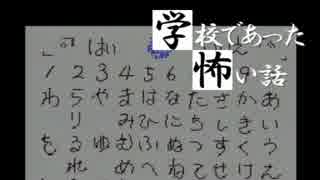 学校であった
怖い話
はい
1 2 3 4 5 6 9
わらやまはなたさかあ
りみひにちしきい
るゆむふぬつすくう
をれめへねてせけえ